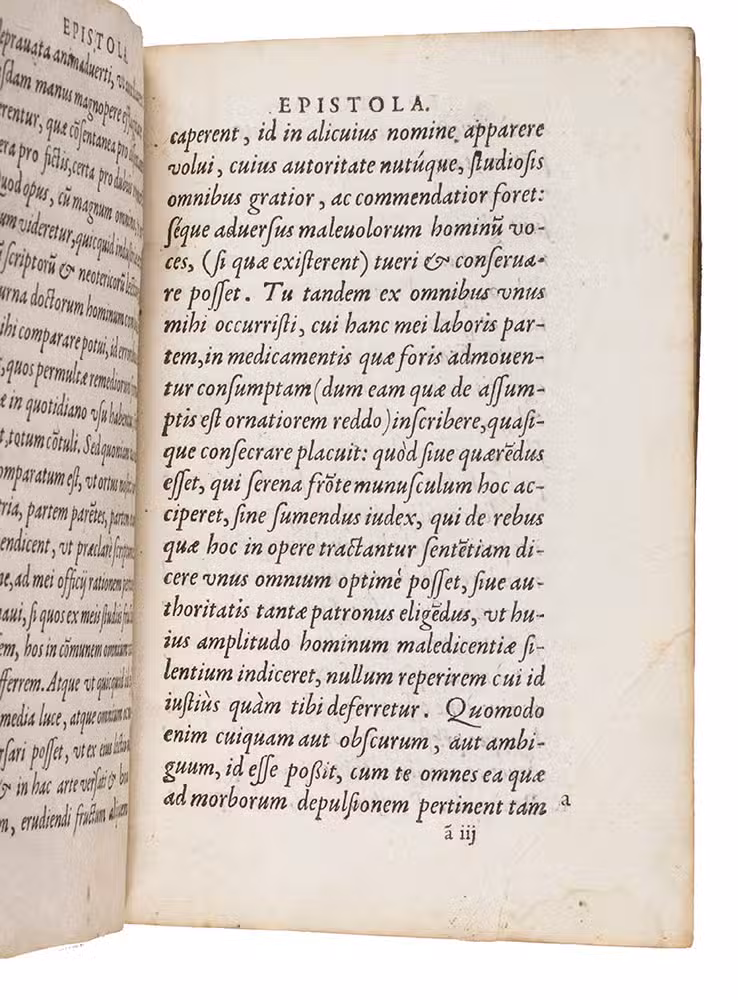 EPISTOLA
deprauata animaduerti, vt
manus magnopere
quæ cõſentanea pro
pro fictis, certa pro
opus, cũ magnum
videretur, quicquid
ſcriptorũ & neotericorũ
doctorum hominum
comparare potui, id
quos permultæ remediorum
in quotidiano vſu
totum cõtuli. Sed quoniam
eſt, vt ortus
partem parẽtes, partem
vt præclarè
ad mei officij rationem
ſi quos ex meis ſtudiis
hos in cõmunem
Atque vt quicquid
media luce, atque omnium
poſſet, vt ex eius
& in hac arte verſati &
erudiendi fructum aliquem
EPISTOLA.
caperent, id in alicuius nomine apparere
volui, cuius autoritate nutúque, ſtudioſis
omnibus gratior, ac commendatior foret:
ſéque aduerſus maleuolorum hominũ vo-
ces, (ſi quæ exiſterent) tueri & conſerua-
re poſſet. Tu tandem ex omnibus vnus
mihi occurriſti, cui hanc mei laboris par-
tem, in medicamentis quæ foris admouen-
tur conſumptam (dum eam quæ de aſſum-
ptis eſt ornatiorem reddo) inſcribere, quaſi-
que conſecrare placuit: quòd ſiue quærẽdus
eſſet, qui ſerena frõte munuſculum hoc ac-
ciperet, ſine ſumendus iudex, qui de rebus
quæ hoc in opere tractantur ſentẽtiam di-
cere vnus omnium optimè poſſet, ſiue au-
thoritatis tantæ patronus eligẽdus, vt hu-
ius amplitudo hominum maledicentiæ ſi-
lentium indiceret, nullum reperirem cui id
iuſtiùs quàm tibi deferretur. Quomodo
enim cuiquam aut obſcurum, aut ambi-
guum, id eſſe poßit, cum te omnes ea quæ
ad morborum depulſionem pertinent tam a
ã iij